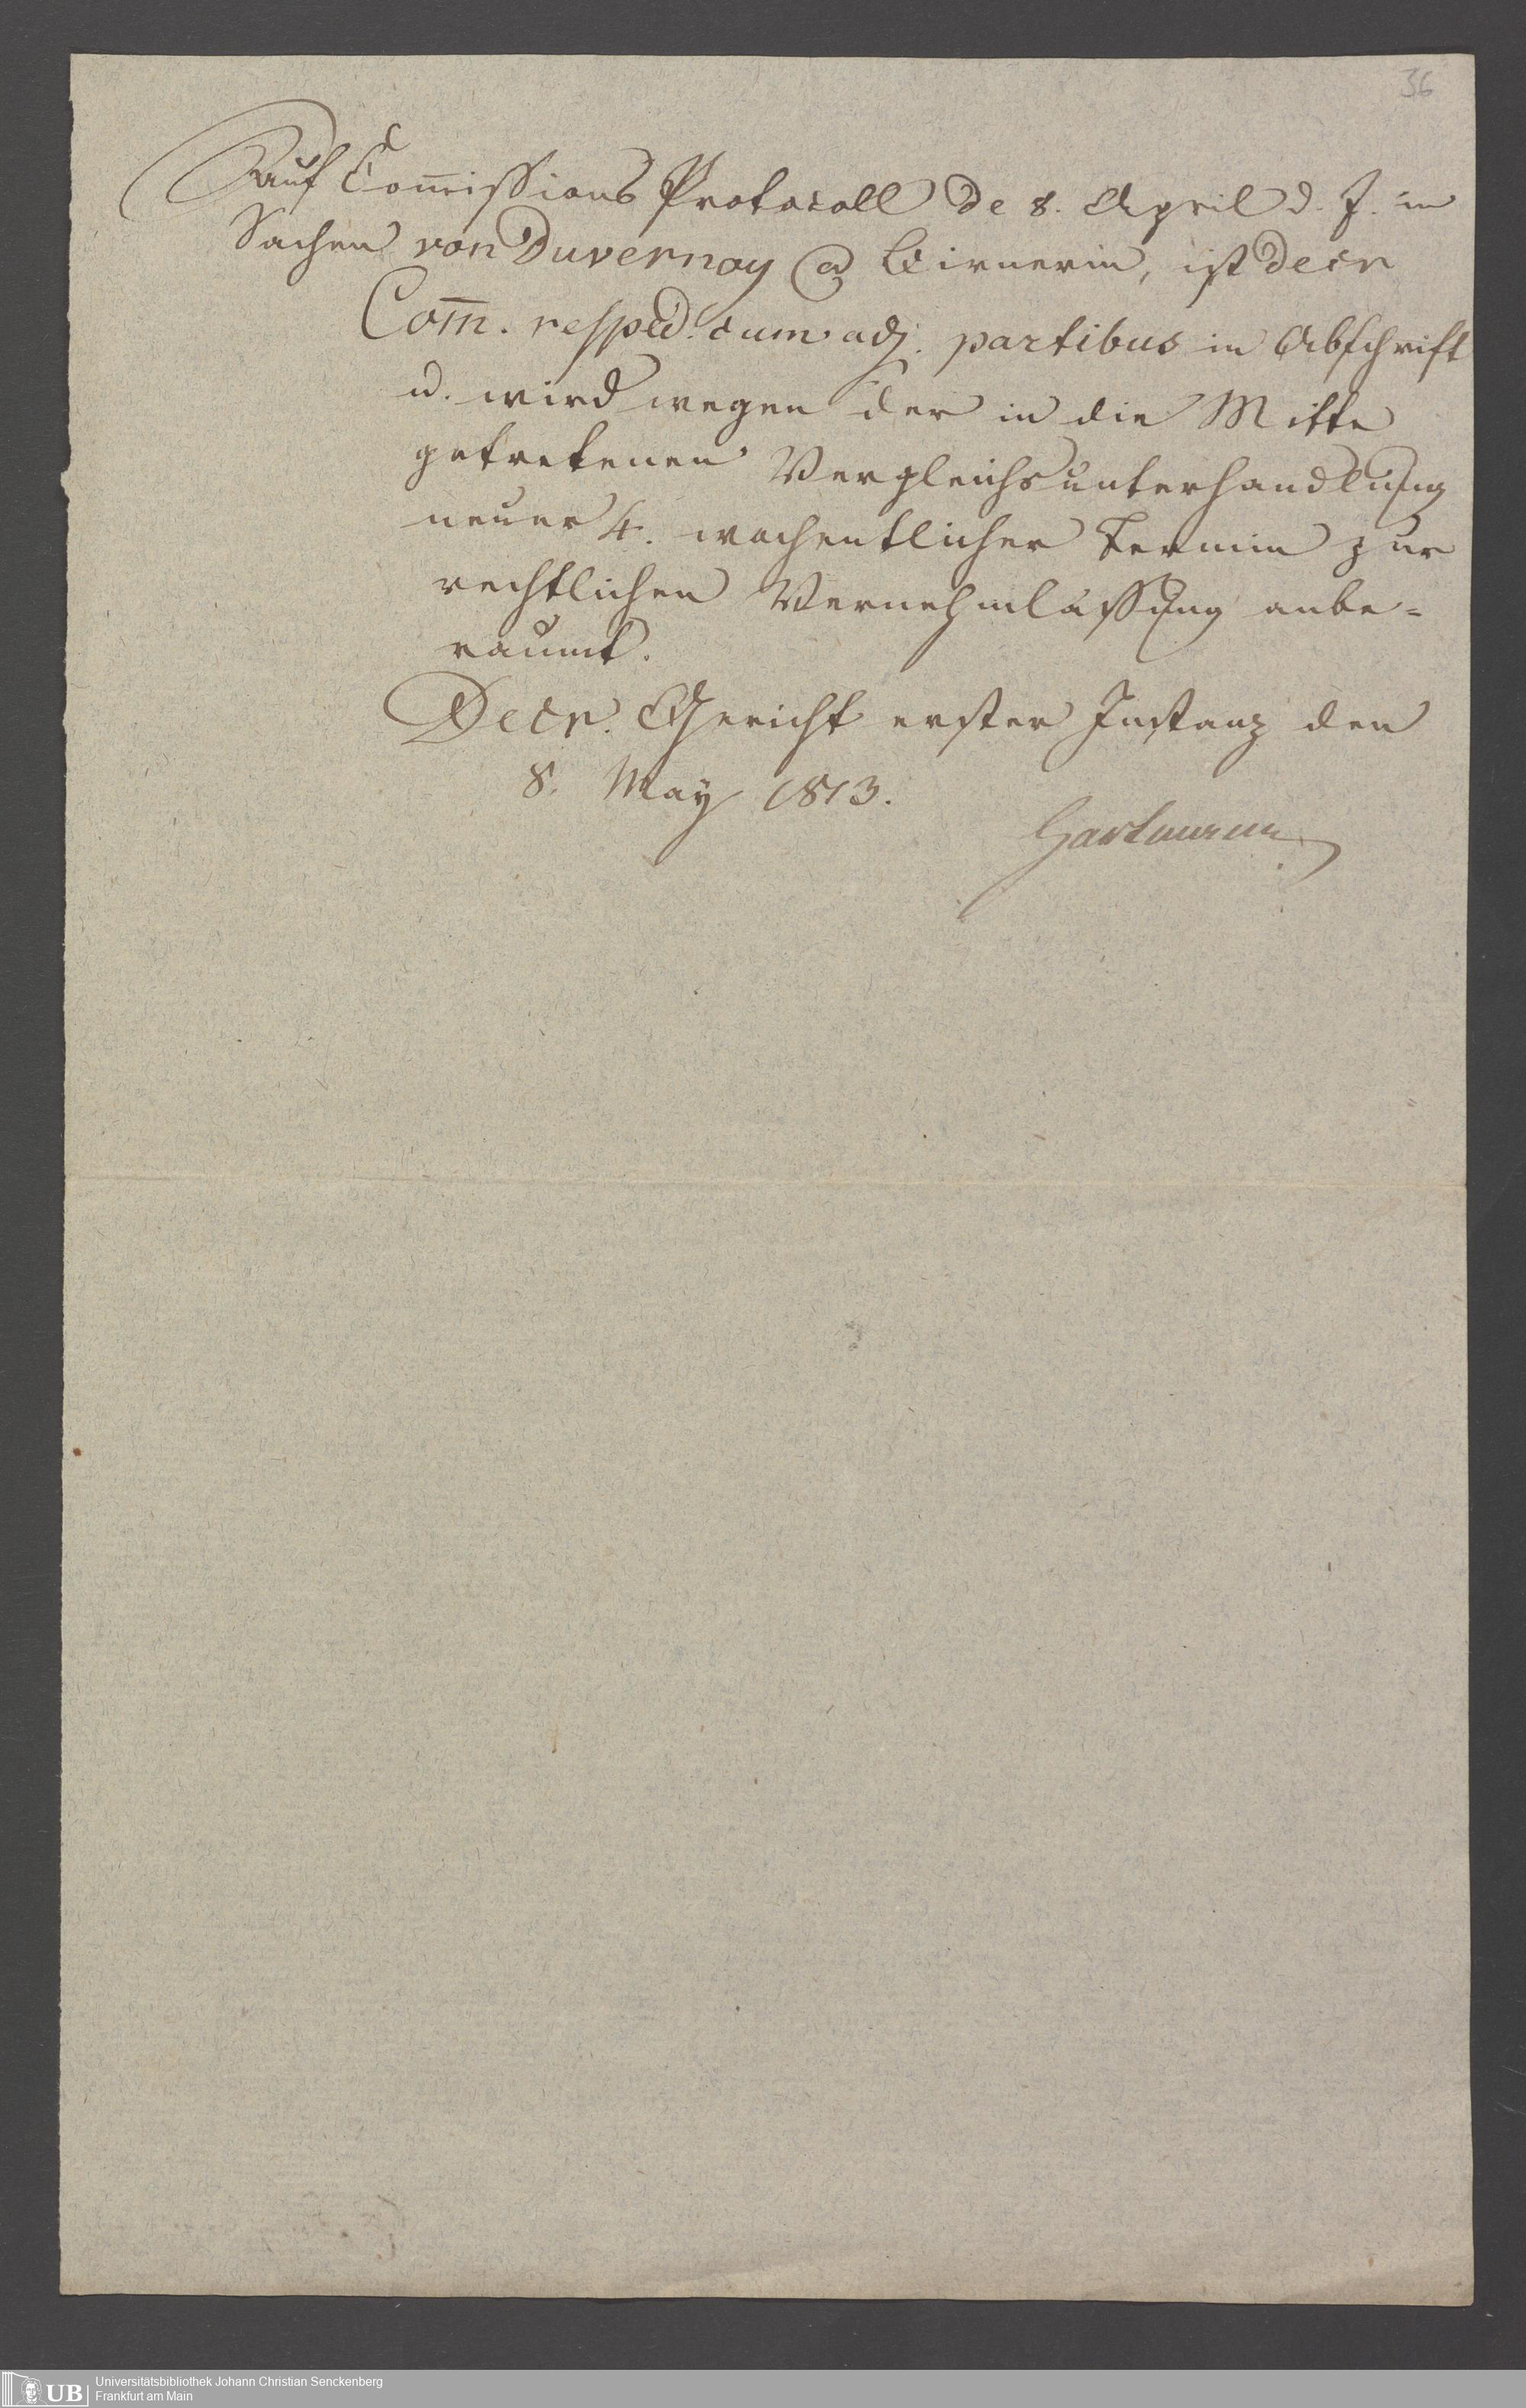 36
Auf Com̅issions Protocoll de 8. April d. J. in
Sachen von Duvernay @ Birnerin, ist decr
Com̅. resped. cum adj. partibus in Abschrift
u. wird wegen der in die Mitte
getretenen Vergleichsunterhandlung
neuer 4. wochentlicher Termin zur
rechtlichen Vernehmlassung anbe-
raumt.
Decr. Gericht erster Instanz den
8. May 1813.
UB Universitätsbibliothek Johann Christian Senckenberg
Frankfurt am Main